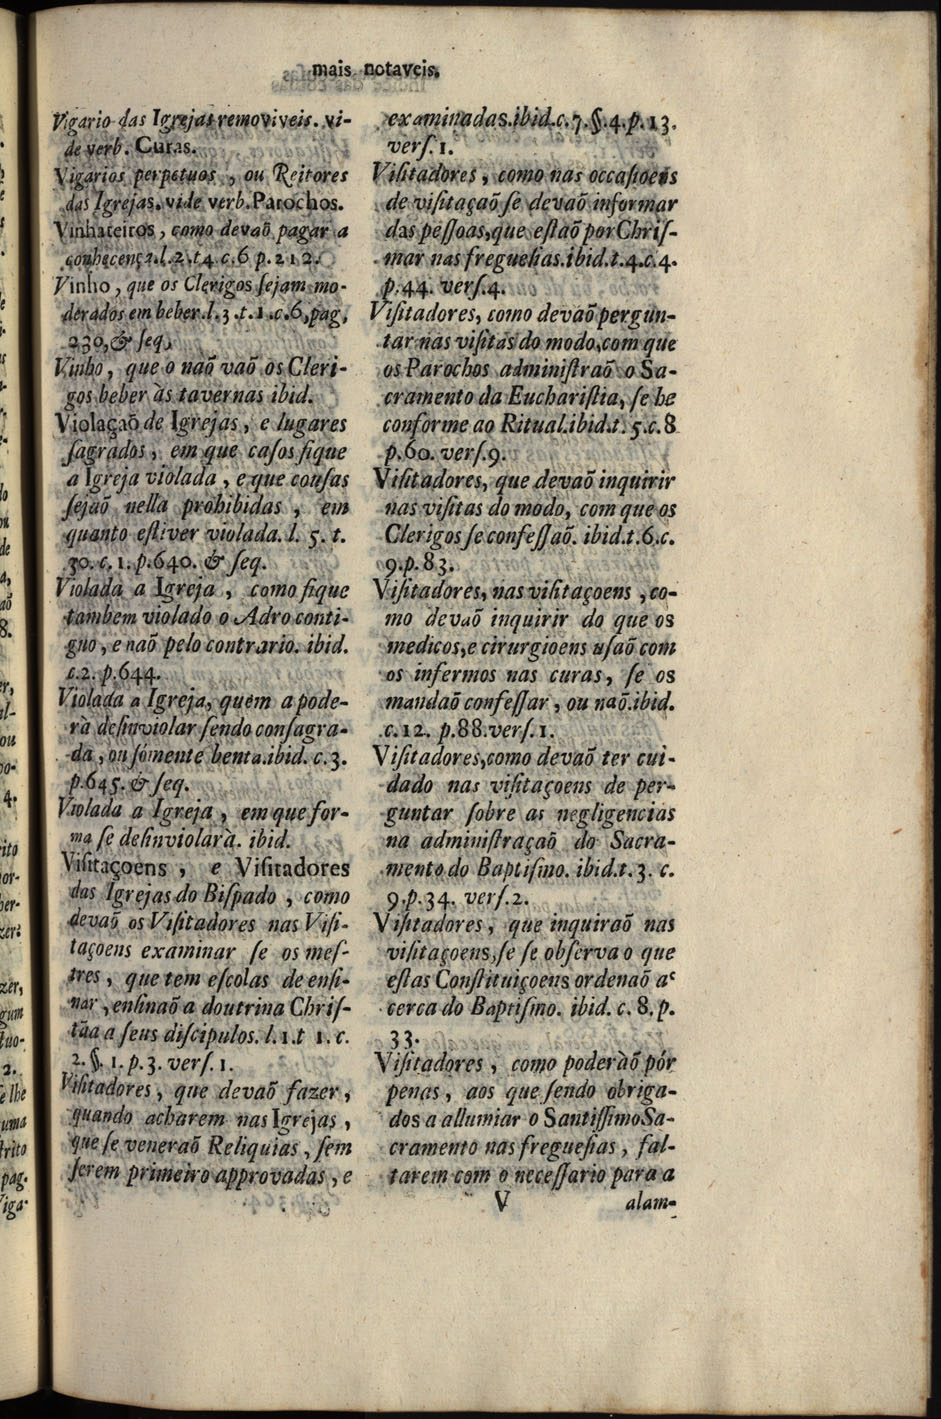 mais notaveis.
Vigario das Igrejas removiveis. vi-
de verb. Curas.
Vigarios perpetuos, ou Reitores
das Igrejas. vide verb. Parochos.
Vinhateiros, como devaõ pagar a
conhecença. l. 2. t 4. c. 6 p. 212.
Vinho, que os Clerigos ſejam mo-
derados em beber. l. 3. t. 1. c. 6, pag,
230, & ſeq.
Vinho, que o naõ vaõ os Cleri-
gos beber às tavernas ibid.
Violaçaõ de Igrejas, e lugares
ſagrados, em que caſos fique
a Igreja violada, e que couſas
ſejaõ nella prohibidas, em
quanto eſtiver violada. l. 5. t.
30. c. 1. p. 640. & ſeq.
Violada a Igreja, como fique
tambem violado o Adro conti-
guo, e naõ pelo contrario. ibid.
c. 2. p. 644.
Violada a Igreja, quem a pode-
rà deſinviolar ſendo conſagra-
da, ou ſómente benta. ibid. c. 3.
p. 645. & ſeq.
Violada a Igreja, em que for-
ma ſe deſinviolarà. ibid.
Viſitaçoens, e Viſitadores
das Igrejas do Biſpado, como
devaõ os Viſitadores nas Viſi-
taçoens examinar ſe os meſ-
tres, que tem eſcolas de enſi-
nar, enſinaõ a doutrina Chriſ-
tãa a ſeus diſcipulos. l. 1. t 1. c.
2. §. 1. p. 3. verſ. 1.
Viſitadores, que devaõ fazer,
quando acharem nas Igrejas,
que ſe veneraõ Reliquias, ſem
ſerem primeiro approvadas, e
examinadas. ibid. c. 7. §. 4. p. 13.
verſ. 1.
Viſitadores, como nas occaſioens
de viſitaçaõ ſe devaõ informar
das peſſoas, que eſtaõ por Chriſ-
mar nas fregueſias. ibid. t. 4. c. 4.
p. 44. verſ. 4.
Viſitadores, como devaõ pergun-
tar nas viſitas do modo, com que
os Parochos adminiſtraõ o Sa-
cramento da Euchariſtia, ſe he
conforme ao Ritual. ibid. t. 5. c. 8
p. 60. verſ. 9.
Viſitadores, que devaõ inquirir
nas viſitas do modo, com que os
Clerigos ſe confeſſaõ. ibid. t. 6. c.
9. p. 83.
Viſitadores, nas viſitaçoens, co-
mo devaõ inquirir do que os
medicos, e cirurgioens uſaõ com
os infermos nas curas, ſe os
mandaõ confeſſar, ou naõ. ibid.
c. 12. p. 88. verſ. 1.
Viſitadores, como devaõ ter cui-
dado nas viſitaçoens de per-
guntar ſobre as negligencias
na adminiſtraçaõ do Sacra-
mento do Baptiſmo. ibid. t. 3. c.
9. p. 34. verſ. 2.
Viſitadores, que inquiraõ nas
viſitaçoens, ſe ſe obſerva o que
eſtas Conſtituiçoens ordenaõ a-
cerca do Baptiſmo. ibid. c. 8. p.
33.
Viſitadores, como poderàõ pór
penas, aos que ſendo obriga-
dos a allumiar o Santiſſimo Sa-
cramento nas freguesias, fal-
tarem com o neceſſario para a
V alam-